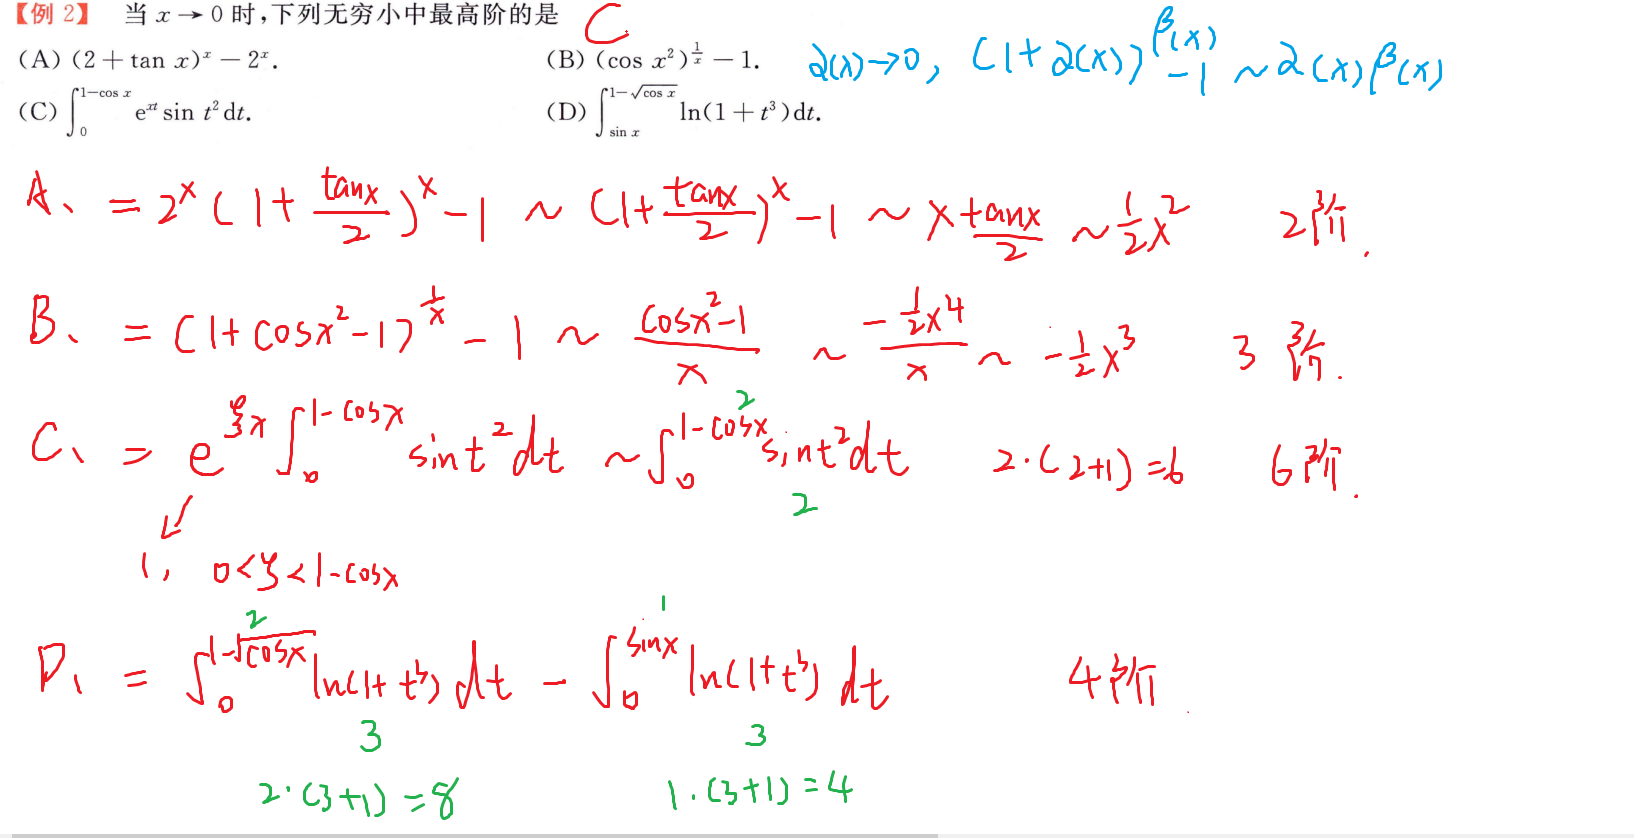 【例 2】 当 x → 0 时,下列无穷小中最高阶的是 C
(A) (2 + tan x)^x − 2^x. (B) (cos x²)^{1/x} − 1. α(x)→0, (1+α(x))^{β(x)} −1 ~ α(x)β(x)
(C) ∫_0^{1−cos x} e^{xt} sin t² dt. (D) ∫_{sin x}^{1−√(cos x)} ln(1 + t³)dt.
A、 = 2^x (1+ tanx/2)^x −1 ~ (1+ tanx/2)^x −1 ~ x tanx/2 ~ 1/2 x² 2阶.
B、 = (1+cosx²−1)^{1/x} − 1 ~ (cosx²−1)/x ~ (−1/2 x⁴)/x ~ −1/2 x³ 3阶.
C、 = e^{ξx} ∫_0^{1−cosx} sint² dt ~ ∫_0^{1−cosx} sint² dt 2·(2+1)=6 6阶.
2
2
1, 0<ξ<1−cosx
2 1
D、 = ∫_0^{1−√cosx} ln(1+t³) dt − ∫_0^{sinx} ln(1+t³) dt 4阶
3 3
2·(3+1)=8 1·(3+1)=4